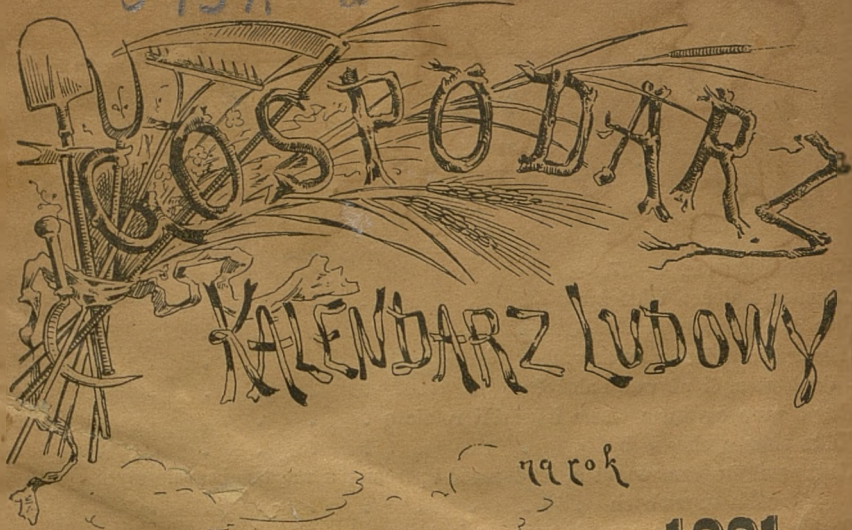 GOSPODARZ
KALENDARZ LUDOWY
na rok